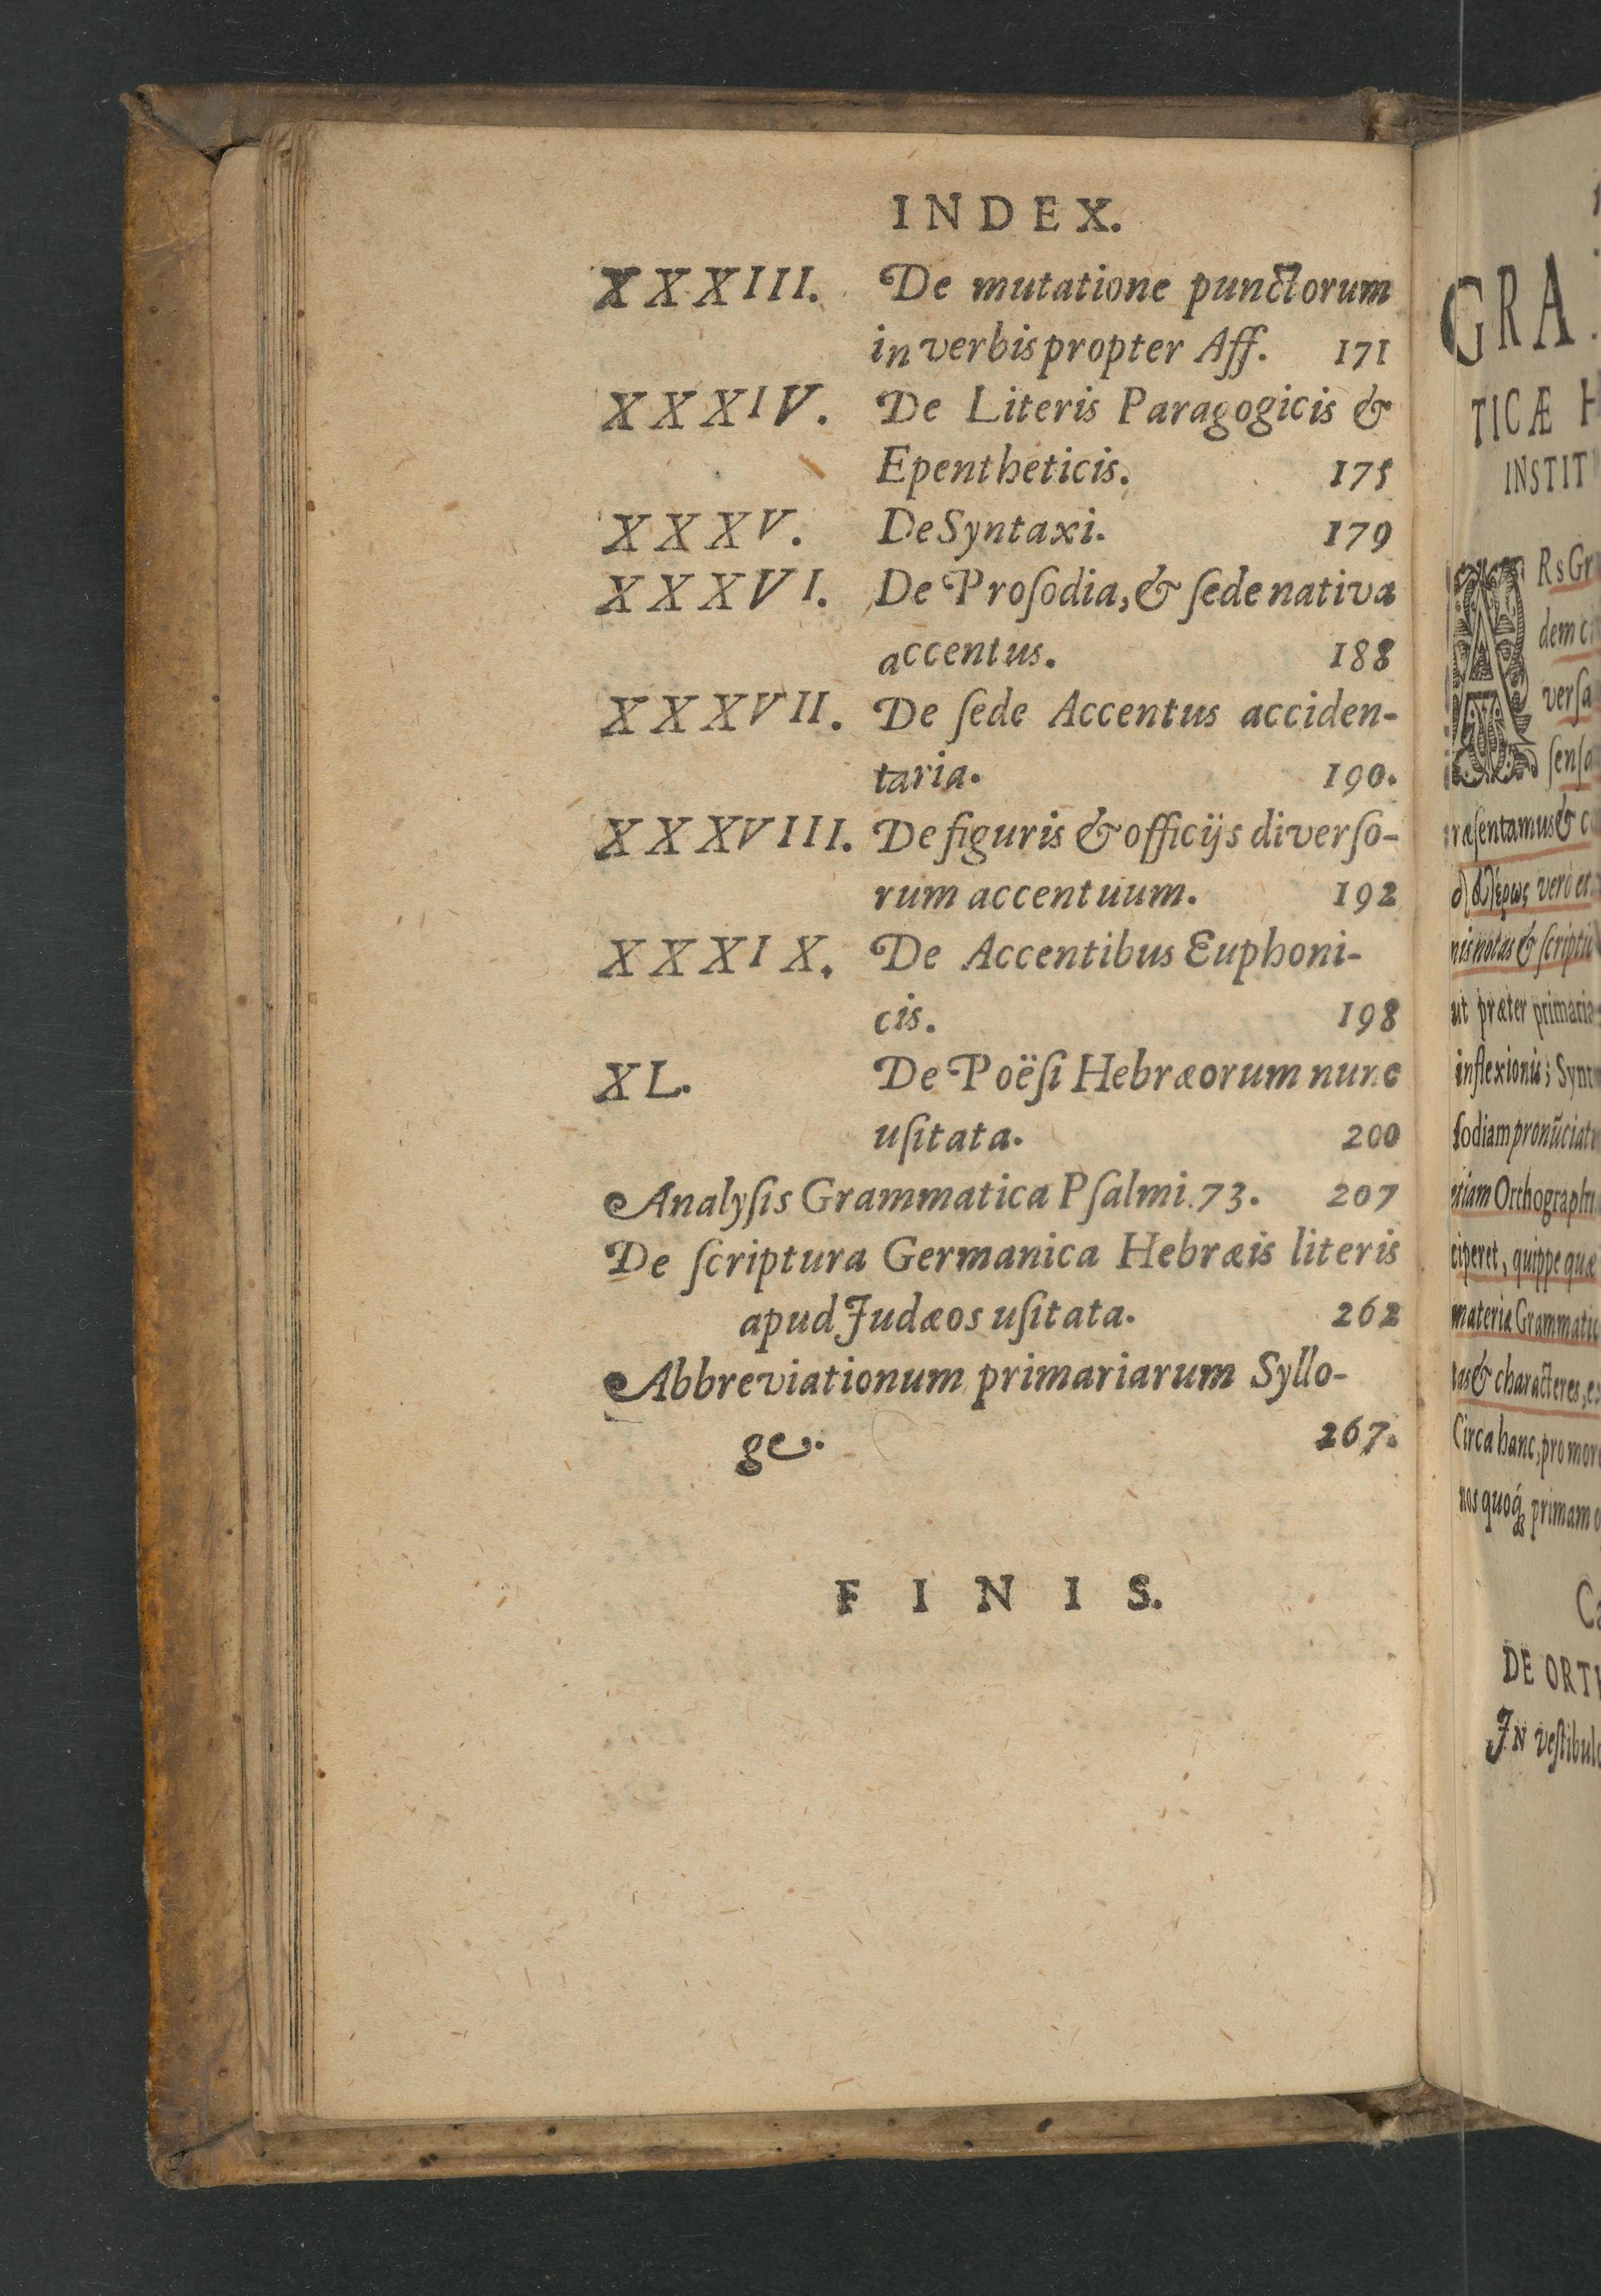 INDEX.
XXXIII. De mutatione punctorum
in verbis propter Aff. 171
XXXIV. De Literis Paragogicis &
Epentheticis. 175
XXXV. De Syntaxi. 179
XXXVI. De Proſodia, & ſede nativa
accentus. 188
XXXVII. De ſede Accentus acciden-
taria. 190.
XXXVIII. De figuris & officijs diverſo-
rum accentuum. 192
XXXIX. De Accentibus Euphoni-
cis. 198
XL. De Poëſi Hebræorum nunc
uſitata. 200
Analyſis Grammatica Pſalmi 73. 207
De ſcriptura Germanica Hebræis literis
apud Judæos uſitata. 262
Abbreviationum primariarum Syllo-
ge. 267.
FINIS.
GRA
TICÆ H
INSTIT
ARs Gr
dem
verſa
ſenſa
ræſentamus & c
vero et
nis notas & ſcriptu
ut præter primaria
inflexionis; Synt
ſodiam pronūciat
etiam Orthograph
ciperet, quippe quæ
materia Grammatic
tas & characteres, e
Circa hanc, pro mor
nos quoq; primam
DE ORT
IN veſtibul